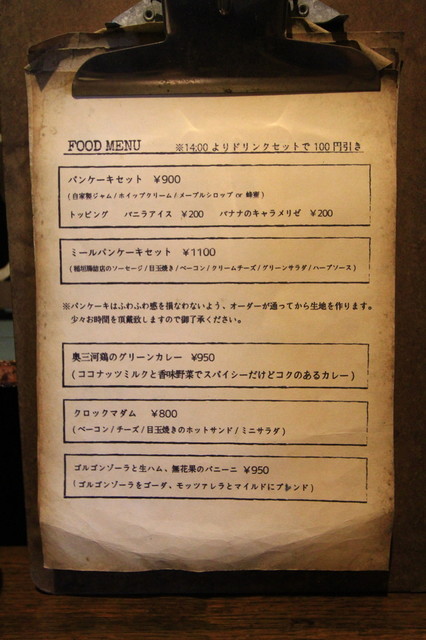 FOOD MENU ※14:00 よりドリンクセットで 100 円引き
パンケーキセット ￥900
(自家製ジャム / ホイップクリーム / メープルシロップ or 蜂蜜)
トッピング バニラアイス ￥200 バナナのキャラメリゼ ￥200
ミールパンケーキセット ￥1100
(稲垣腸詰店のソーセージ / 目玉焼き / ベーコン / クリームチーズ / グリーンサラダ / ハーブソース)
※パンケーキはふわふわ感を損なわないよう、オーダーが通ってから生地を作ります。
少々お時間を頂戴致しますので御了承ください。
奥三河鶏のグリーンカレー ￥950
(ココナッツミルクと香味野菜でスパイシーだけどコクのあるカレー)
クロックマダム ￥800
(ベーコン / チーズ / 目玉焼きのホットサンド / ミニサラダ)
ゴルゴンゾーラと生ハム、無花果のパニーニ ￥950
(ゴルゴンゾーラをゴーダ、モッツァレラとマイルドにブレンド)